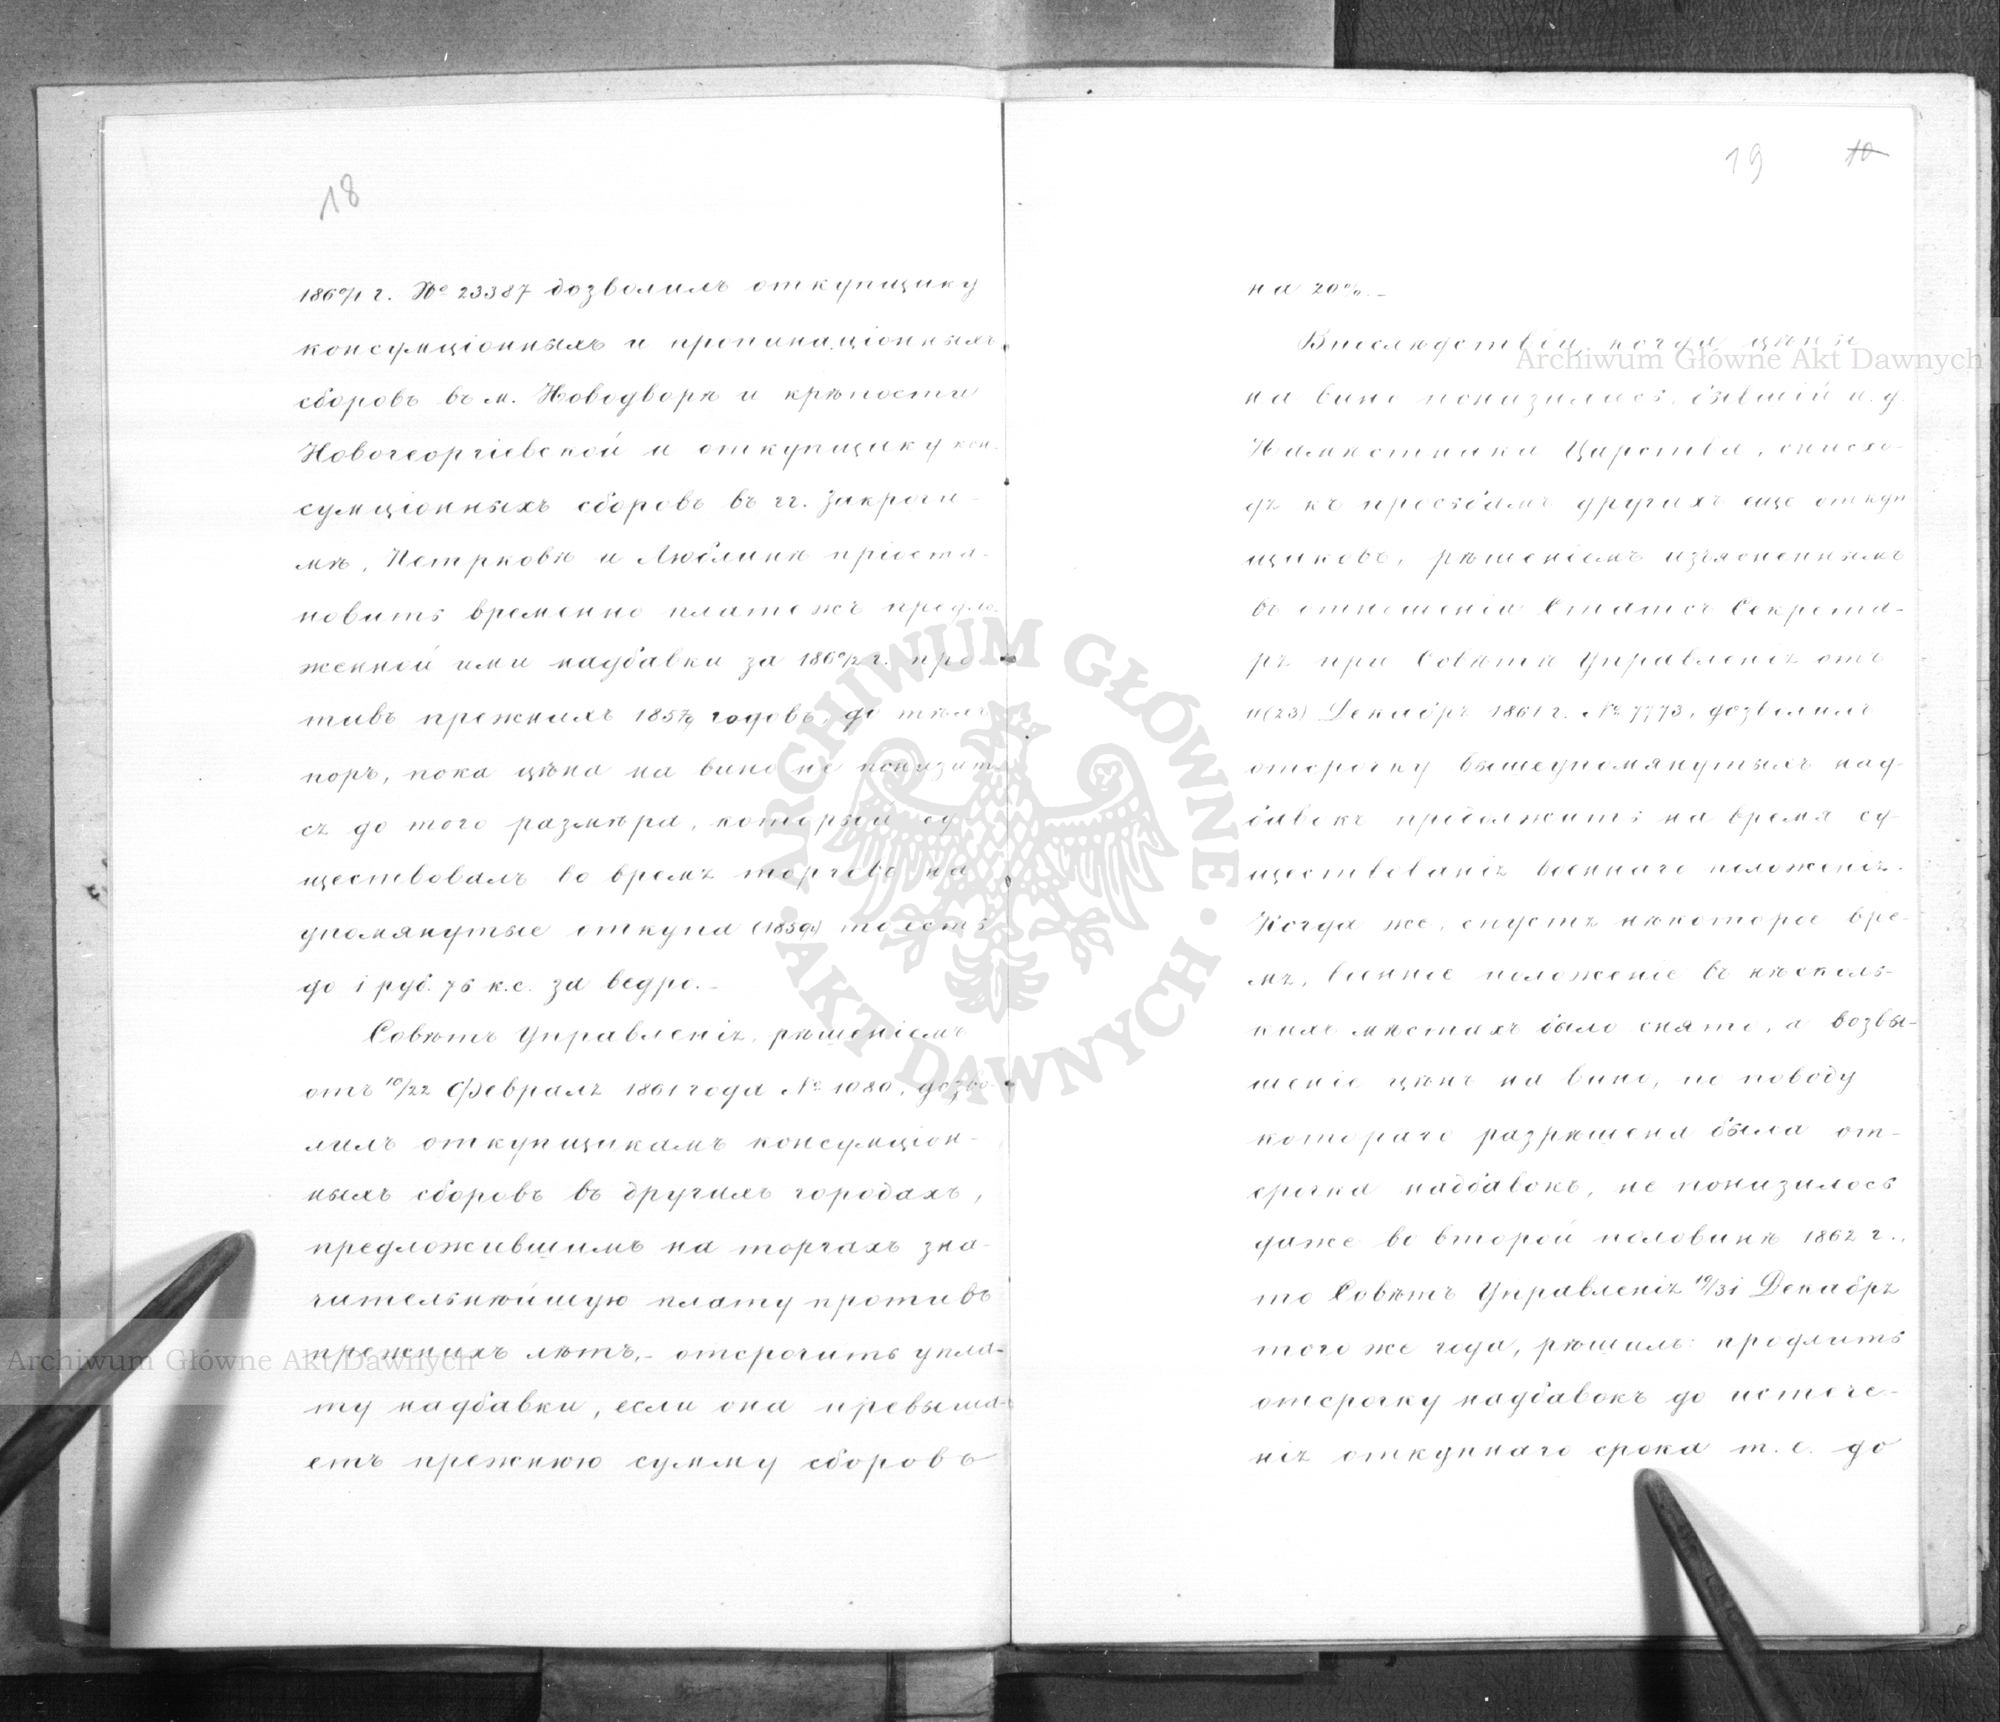 18
1860/1 г. № 23387 дозволилъ откупщику
консумціонныхъ и пропинаціонныхъ
сборовъ въ м. Новодворѣ и крѣпости
Новогеоргіевской и откупщику кон-
сумціонныхъ сборовъ въ гг. Закрочи-
мѣ, Петрковѣ и Люблинѣ пріоста-
новить временно платежъ предло-
женной ими надбавки за 1860/2 г. про-
тивъ прежнихъ годовъ, до тѣхъ
поръ, пока цѣна на вино не понизит-
ся до того размѣра, который су-
ществовалъ во время торговъ на
упомянутые откупа то есть
до 1 руб. 75 к.с. за ведро.-
Совѣтъ Управленія, рѣшеніемъ
отъ 10/22 Февраля 1861 года № 1080, дозво-
лилъ откупщикамъ консумціон-
ныхъ сборовъ въ другихъ городахъ,
предложившимъ на торгахъ зна-
чительнѣйшую плату противъ
прежнихъ лѣтъ,- отсрочить упла-
ту надбавки, если она превыша-
етъ прежнюю сумму сборовъ
19 10
на 20%.-
Впослѣдствіи, когда цѣны
на вино понизились, бывшій и. д.
Намѣстника Царства, снисхо-
дя къ просьбамъ другихъ еще откуп
щиковъ, рѣшеніемъ изъясненнымъ
въ отношеніи Статсъ Секрета-
ря при Совѣтѣ Управленія отъ
11(23) Декабря 1861 г. № 7773, дозволилъ
отсрочку вышеупомянутыхъ над-
бавокъ продолжить на время су-
ществованія военнаго положенія.
Когда же, спустя нѣкоторое вре-
мя, военное положеніе въ нѣсколь-
кихъ мѣстахъ было снято, а возвы-
шеніе цѣнъ на вино, по поводу
котораго разрѣшена была от-
срочка надбавокъ, не понизилось
даже во второй половинѣ 1862 г.,
то Совѣтъ Управленія 19/31 Декабря
того же года, рѣшилъ: продлить
отсрочку надбавокъ до истече-
нія откупнаго срока т. е. до
Archiwum Główne Akt Dawnych
Archiwum Główne Akt Dawnych
ARCHIWUM GŁÓWNE · AKT DAWNYCH ·